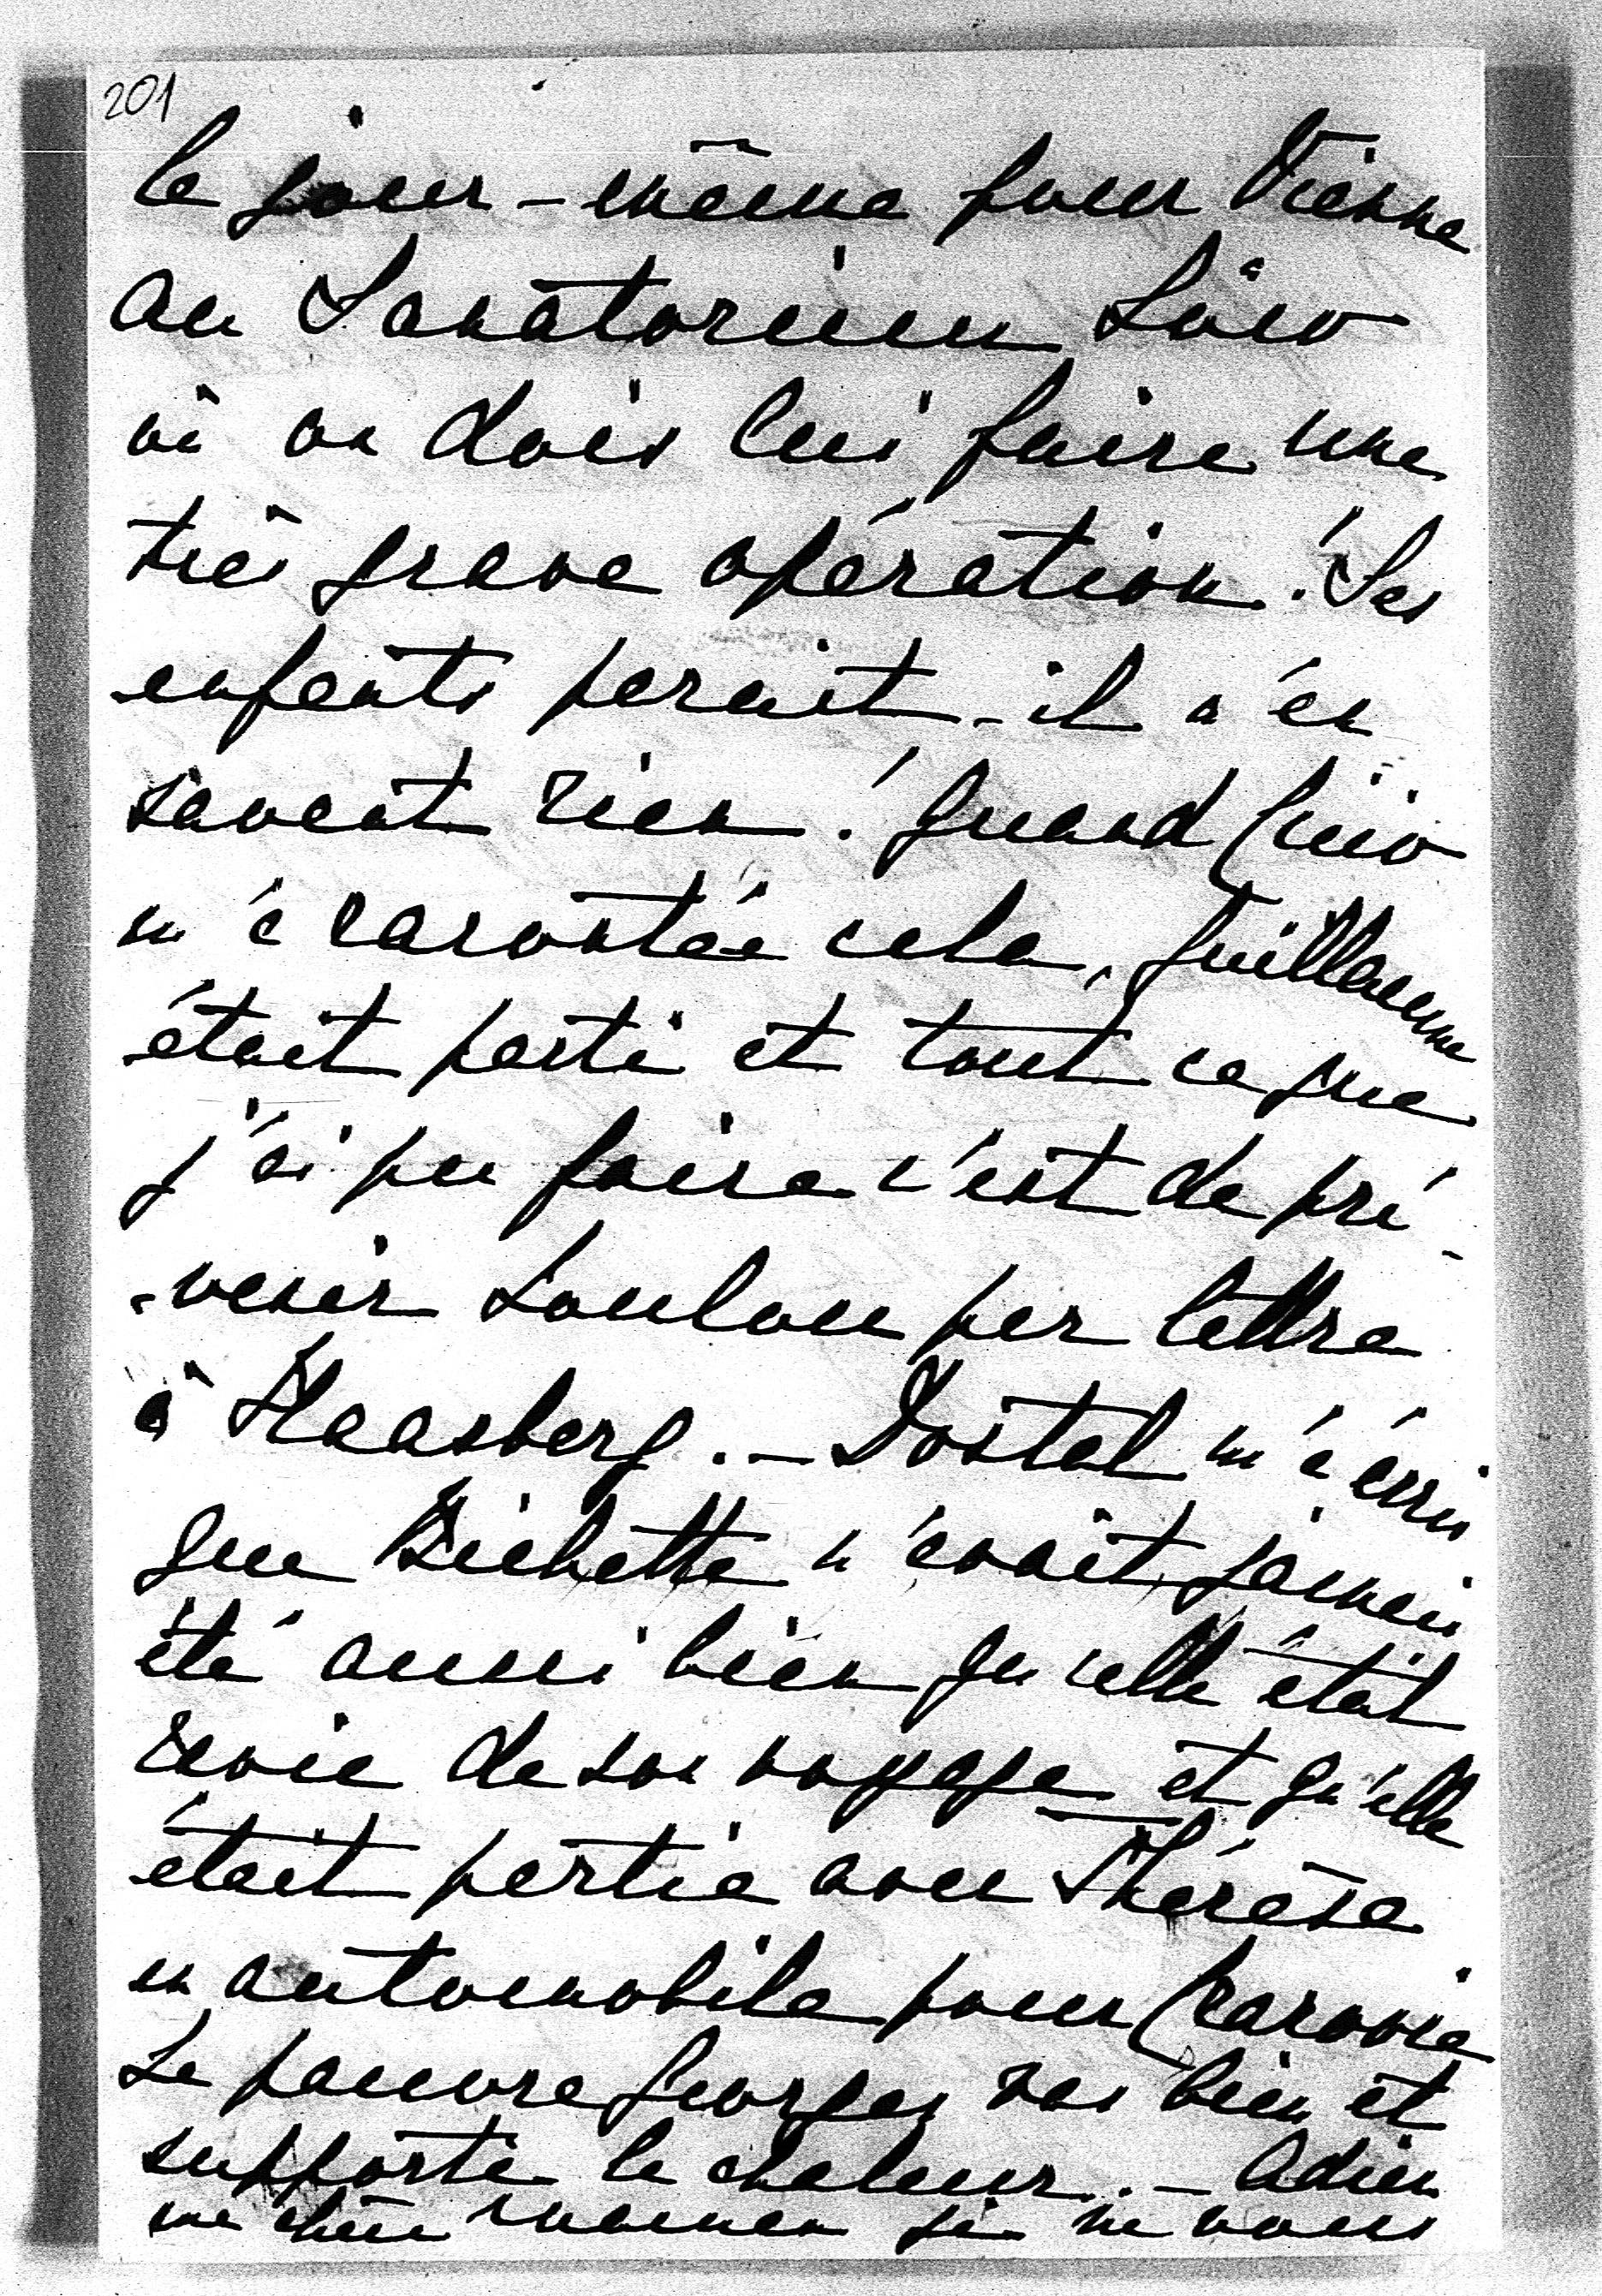 201
le jour-même pour Vienne
au Sanatorium Löw
où on dois lui faire une
très grave opération! Ses
enfants parait-il n'en
savent rien! Quand
m'a racontée cela, Guillaume
était parti et tout ce que
j'ai pu faire c'est de pré-
-venir Loulou par lettre
à Haasberg.- Dostal m'a écris
que Bichette n'avait jamais
été aussi bien qu'elle était
ravie de son voyage et qu'elle
était partie avec Thérèse
en automobile pour
Le pauvre Georges vas bien et
supporte la chaleur.- Adieu
ma chère maman je ne vous